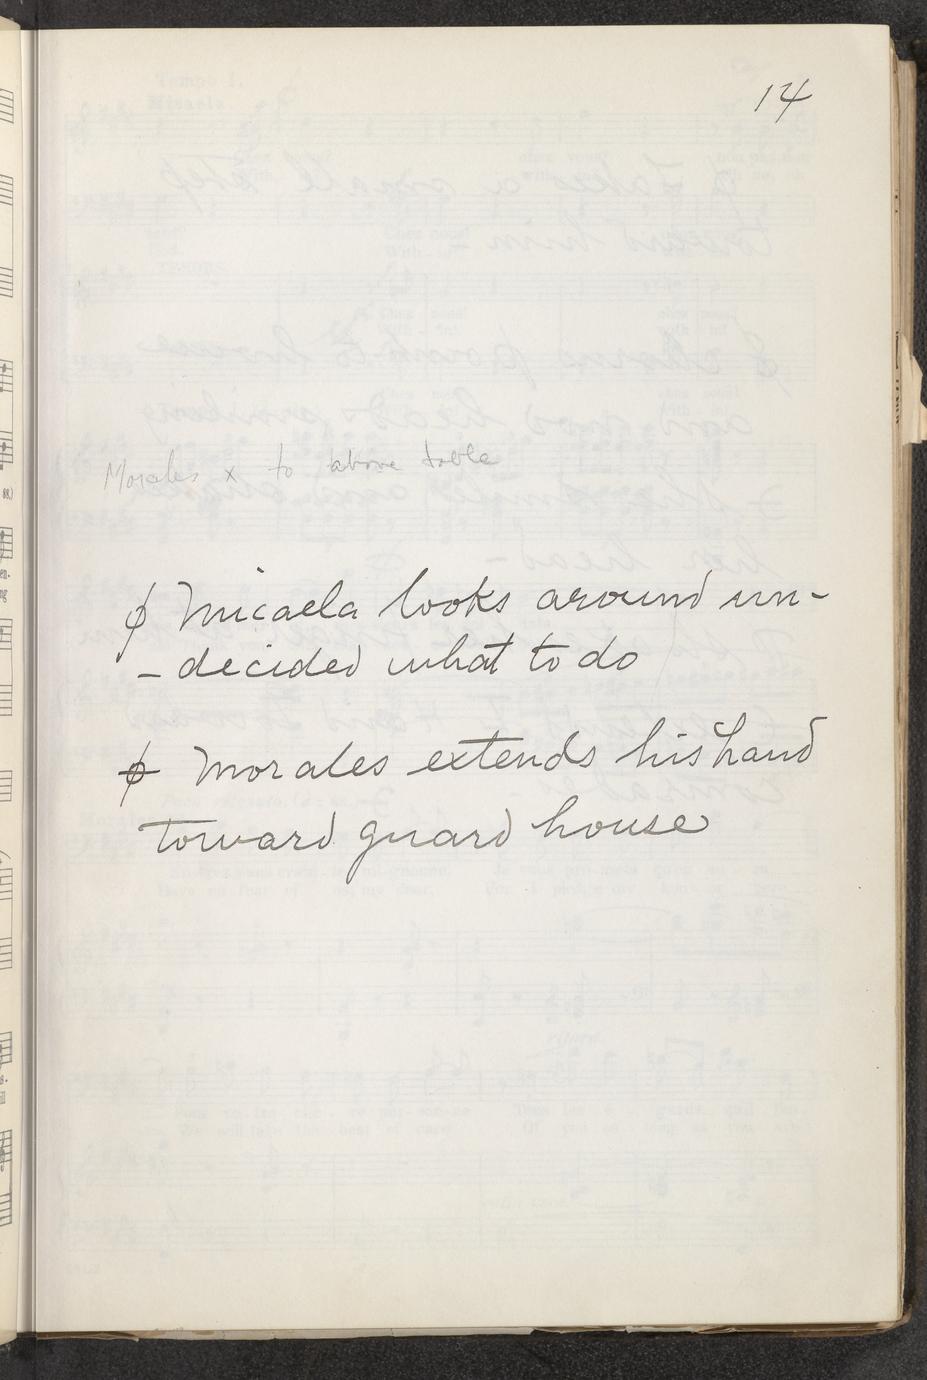 14
Morales x to above table
ϕ Micaela looks around un-
- decided what to do
ϕ Morales extends his hand
toward guard house